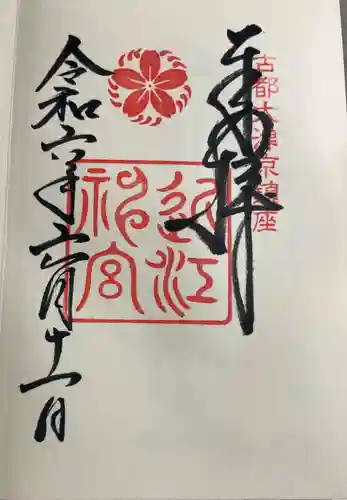 古都大津京鎮座
奉拝
近江
神宮
令和六年六月十一日